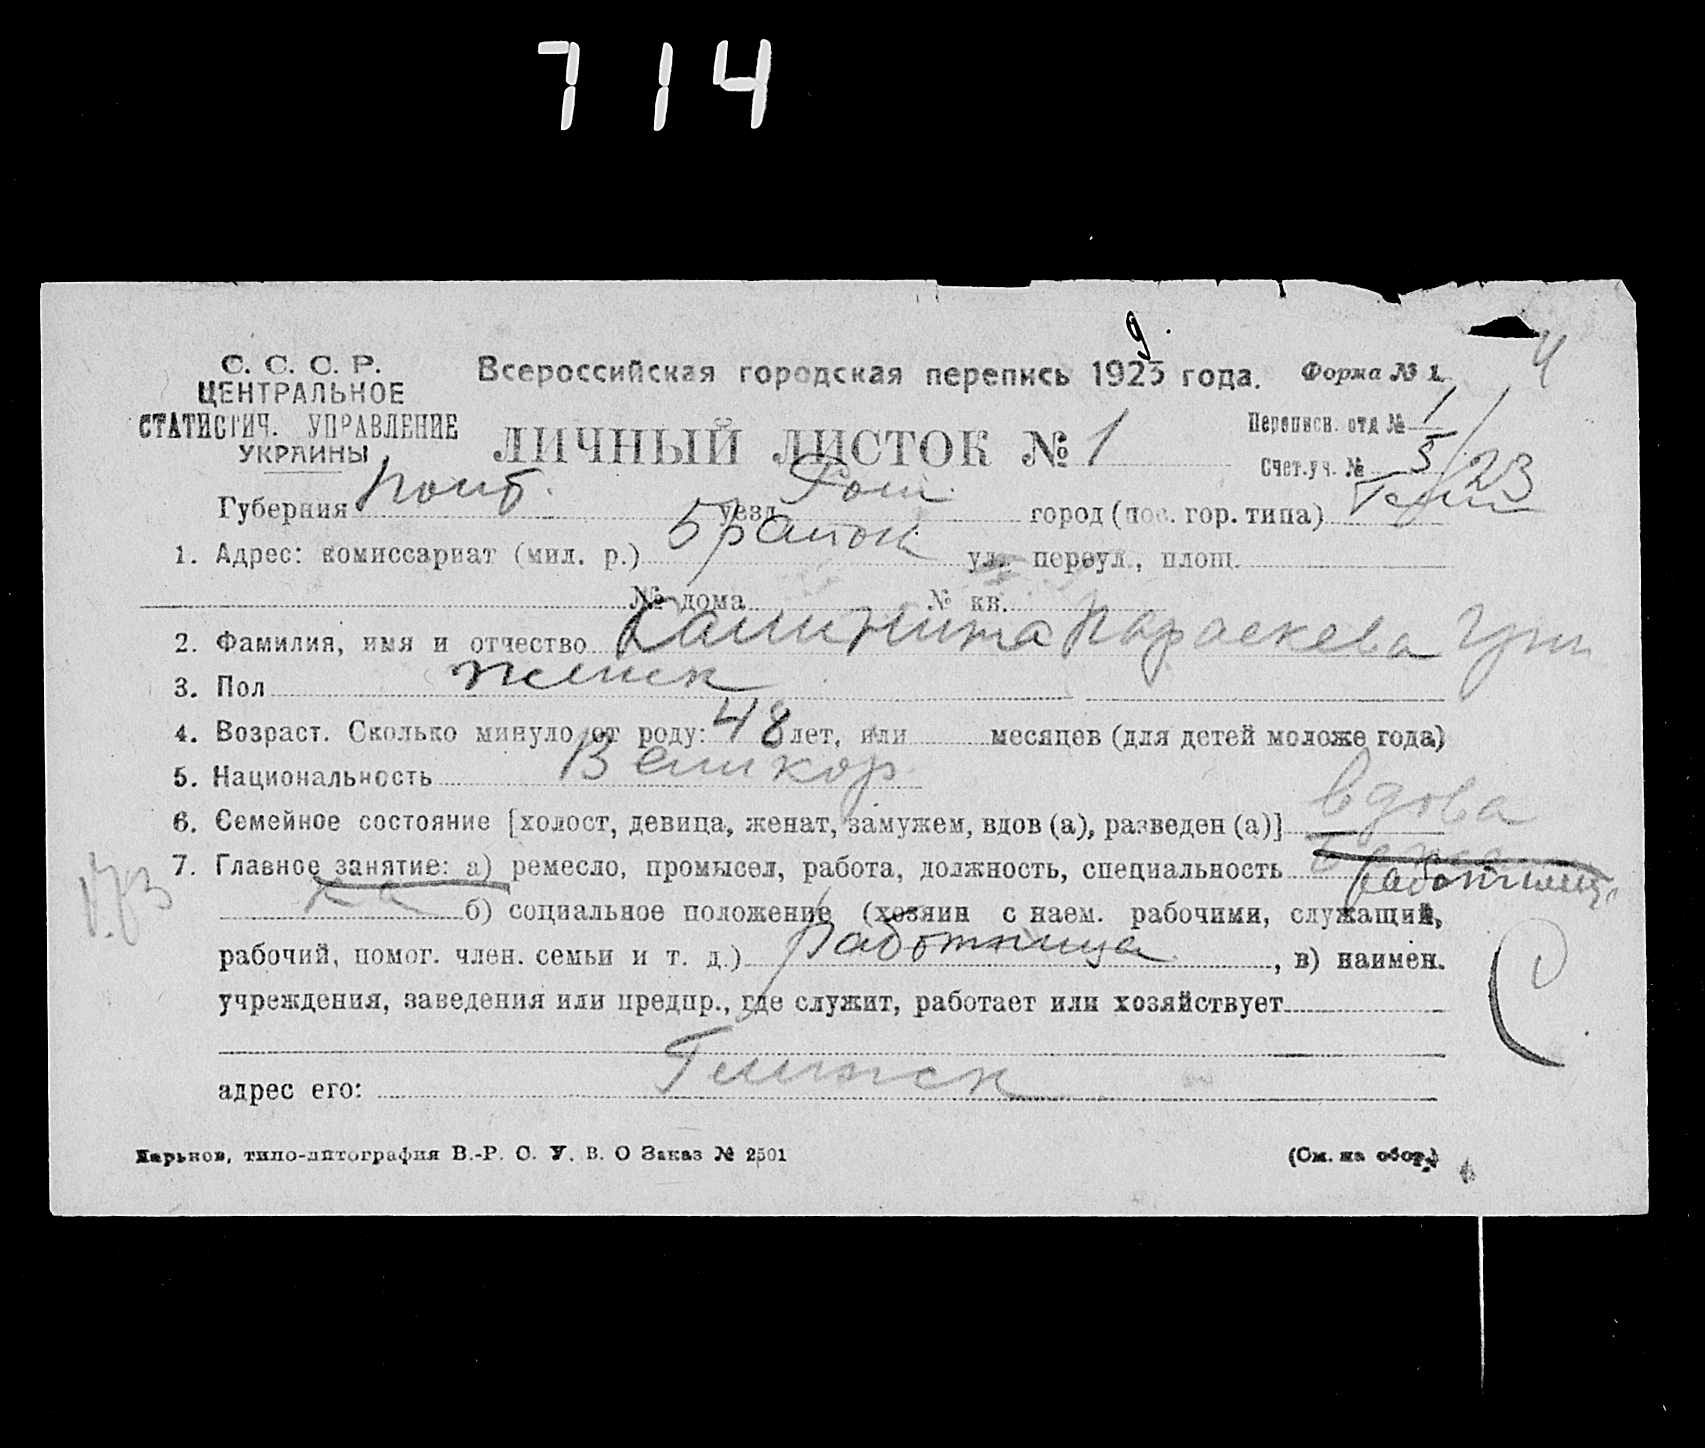 714
9
4
С. С. С. Р.
ЦЕНТРАЛЬНОЕ
СТАТИСТИЧ. УПРАВЛЕНИЕ
УКРАИНЫ
Всероссийская городская перепись 1923 года.
Форма № 1.
ЛИЧНЫЙ ЛИСТОК № 1
Переписн. отд № 1
Счет.уч. № 5 /23
Губерния Полт. уезд Ром. город (пос. гор. типа)
1. Адрес: комиссариат (мил. р.) 5 район ул., переул., площ.
№ дома № кв.
2. Фамилия, имя и отчество Калинина Параскева
3. Пол женск
4. Возраст. Сколько минуло от роду: 48 лет, или месяцев (для детей моложе года)
5. Национальность Великор
6. Семейное состояние [холост, девица, женат, замужем, вдов (а), разведен (а)] вдова
7. Главное занятие: а) ремесло, промысел, работа, должность, специальность работница
б) социальное положение (хозяин с наем. рабочими, служащий,
рабочий, помог. член. семьи и т. д.) Работница, в) наимен.
учреждения, заведения или предпр., где служит, работает или хозяйствует
адрес его: Глинск
Харьков, типо-литография В.-Р. С. У. В. О Заказ № 2501
(См. на обор.)